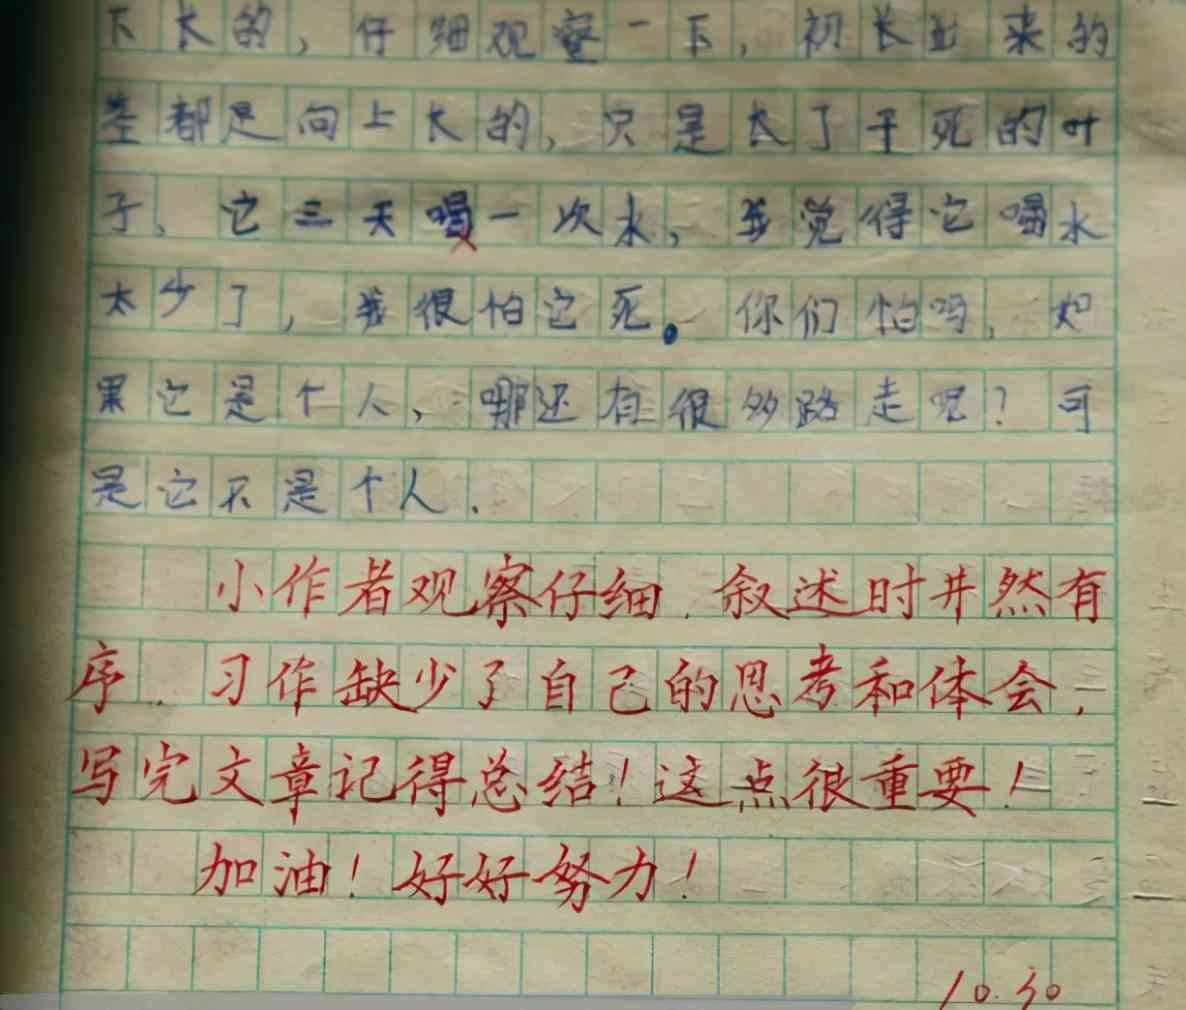 下长的,仔细观察一下,初长出来的
茎都是向上长的,只是长了干死的叶
子,它三天喝一次水,我觉得它喝水
太少了,我很怕它死。你们怕吗,如
果它是个人,哪还有很多路走呢?可
是它不是个人.
小作者观察仔细.叙述时井然有
序.习作缺少了自己的思考和体会,
写完文章记得总结!这点很重要!
加油!好好努力!
10.30